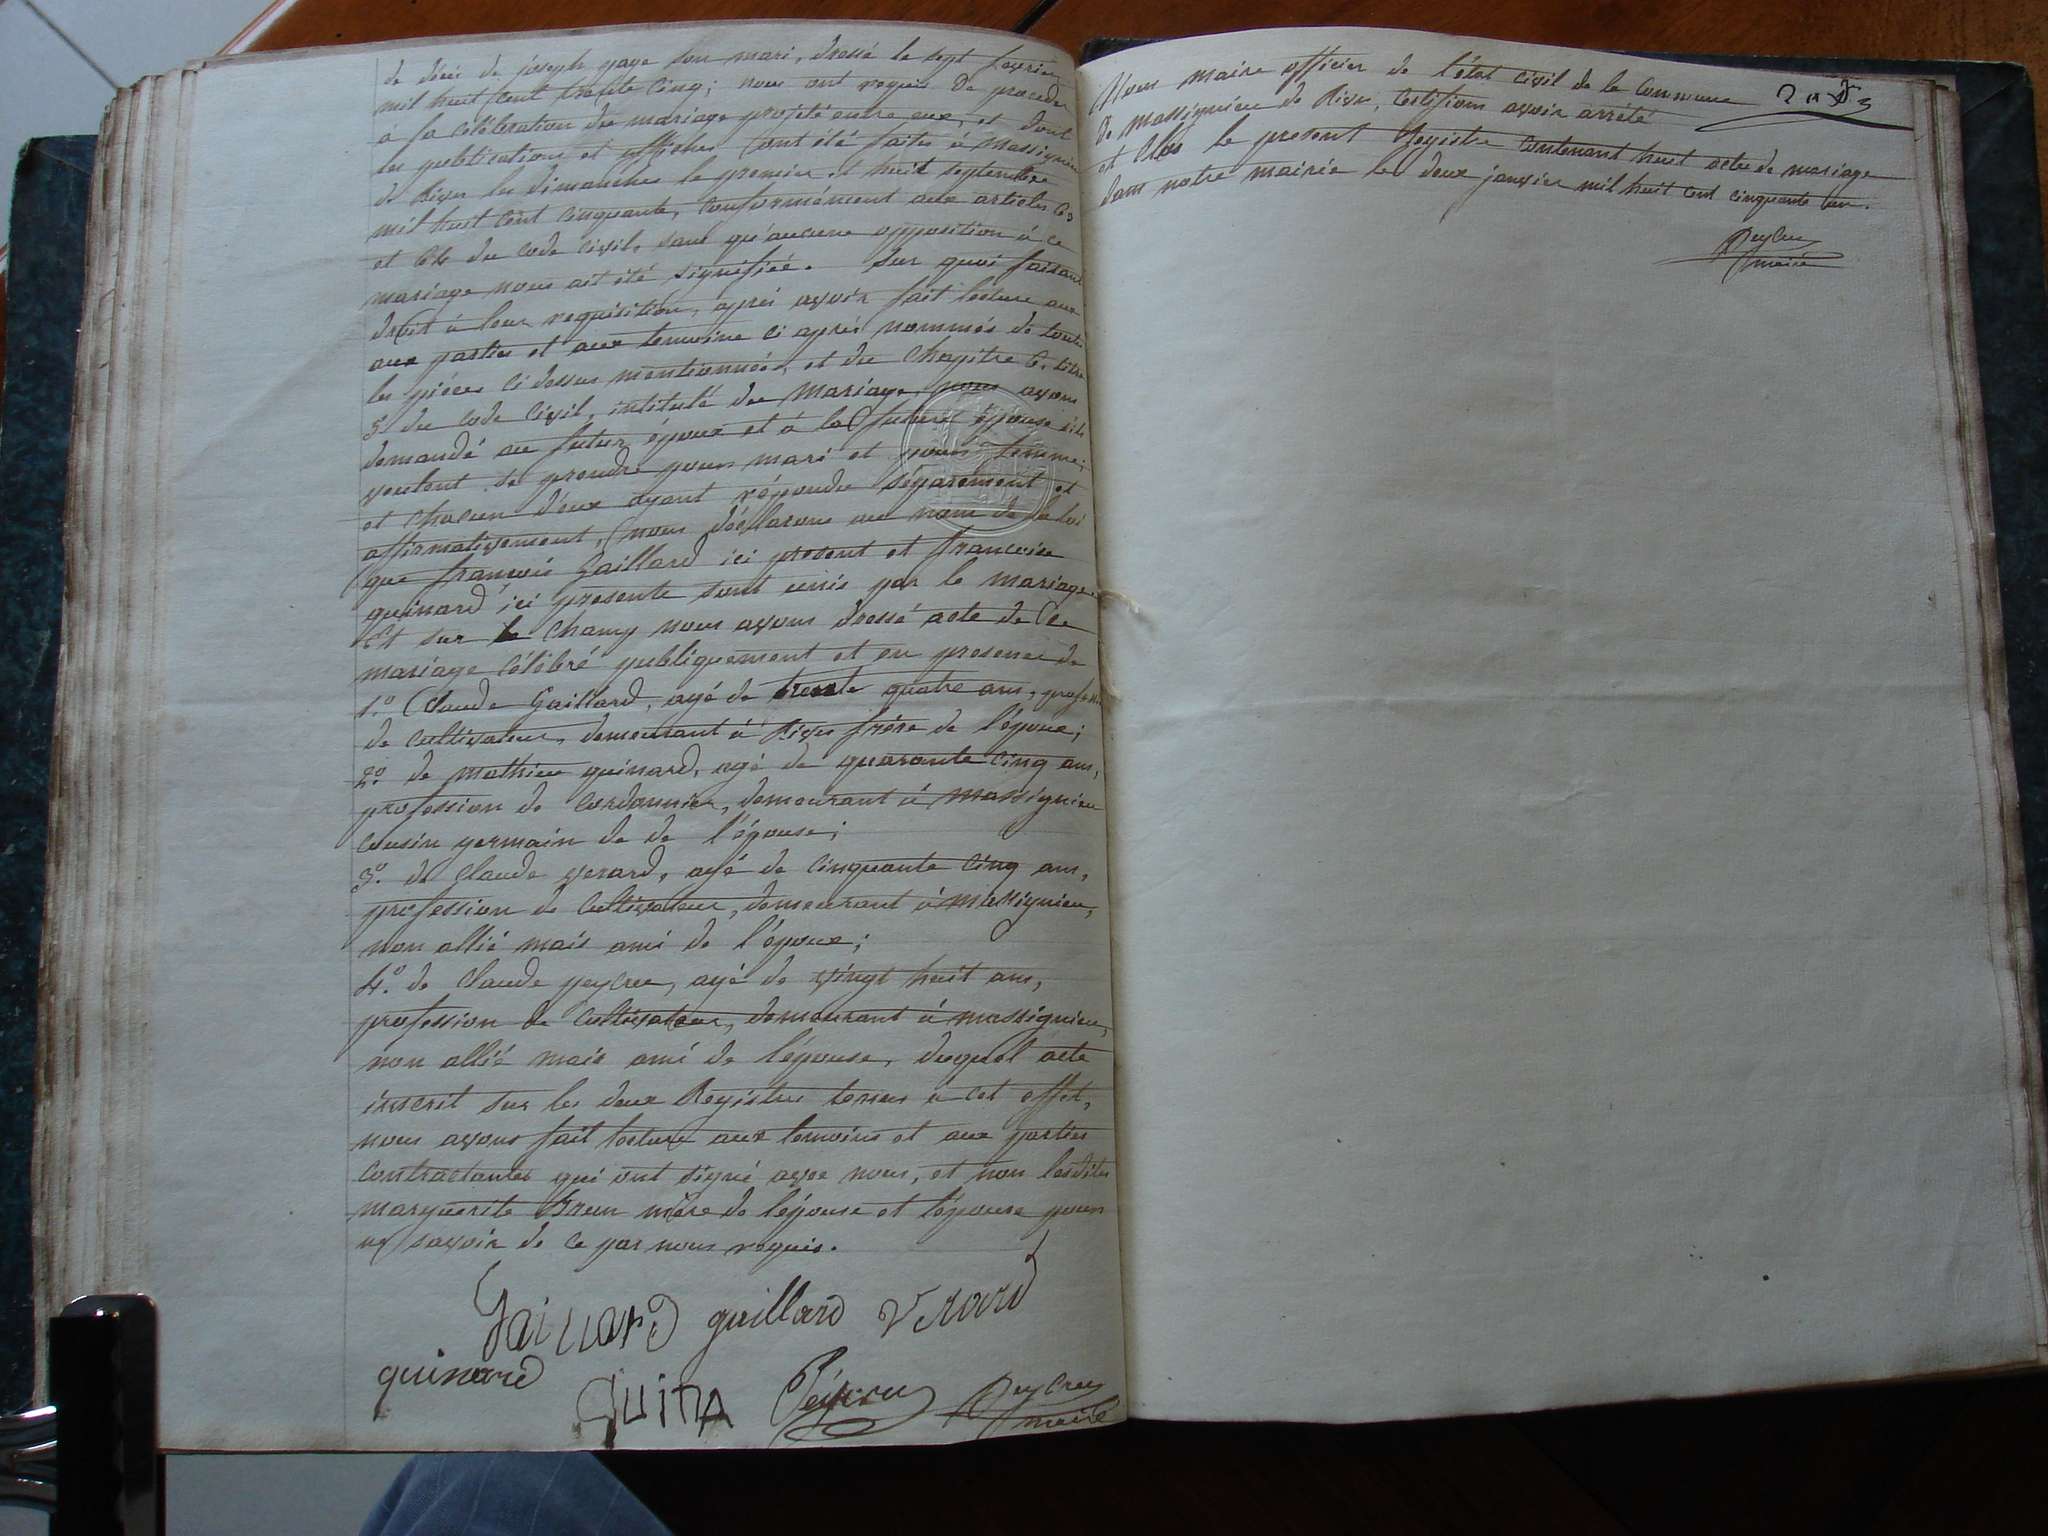 de décès de joseph gage son mari, dressé le sept fevrier
mil huit cent trente cinq; nous ont requis de proceder
a la célébration du mariage projeté entre eux, et dont
les publications et affiches ont été faites à Massignieu
de Rives les dimanches le premier et huit septembre
mil huit cent cinquante, conformément aux articles 63
et 64 du code civil, sans qu'aucune opposition à ce
mariage nous ait été signifiée. Sur quoi faisant
droit à leur requisition, après avoir fait lecture aux
aux parties et aux temoins ci après nommés de toutes
les pièces ci dessus mentionnées, et du Chapitre 6. titre
5 du code Civil, intitulé du Mariage, nous avons
demandé au futur époux et à la future épouse s'ils
veulent se prendre pour mari et pour femme;
et chacun d'eux ayant répondu séparement et
affirmativement, nous déclarons au nom de la loi
que françois Gaillard ici present et françoise
guinard ici presente sont unis par le mariage.
Et sur le champ nous avons dressé acte de Ce
mariage célébré publiquement et en presence de
1.º Claude Gaillard, agé de trente quatre ans, profession
de cultivateur, demeurant à Rives frère de l'époux;
2.º de mathieu guinard, agé de quarante cinq ans,
profession de cordonnier, demeurant à Massignieu
cousin germain de de l'épouse;
3.º de Claude verard, agé de cinquante cinq ans,
profession de cultivateur, demeurant à massignieu,
non allié mais ami de l'époux;
4.º de Claude peycru, agé de vingt huit ans,
profession de cultivateur, demeurant à massignieu,
non allié mais ami de l'épouse, duquel acte
inscrit sur les deux Registres tenus à cet effet,
nous avons fait lecture aux temoins et aux parties
contractantes qui ont signé avec nous, et non lesdites
marguerite Brun mère de l'épouse et l'épouse pour
ne savoir de ce par nous requis.
Gaillard gaillard Verard
guinard GUINA Péycru Peycru
maire
Nous maire officier de l'état civil de la Commune
de Massignieu de Rives, Certifions avoir arrêté
et Clos le present Registre Contenant huit actes de mariage
dans notre mairie le deux janvier mil huit cent cinquante un.
Peycru
maire